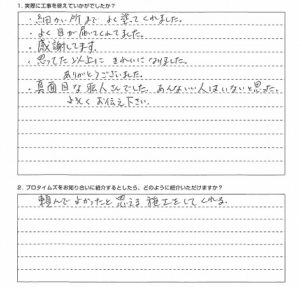 1. 実際に工事を終えていかがでしたか?
・細かい所まで よく塗ってくれました。
・よく目が届いてくれてました。
・感謝してます。
・思ってた以上に きれいになりました。
ありがとうございました。
・真面目な職人さんでした。あんないい人はいないと思った。
よろしくお伝え下さい。
2. プロタイムズをお知り合いに紹介するとしたら、どのように紹介いただけますか?
頼んでよかったと思える施工をしてくれる。